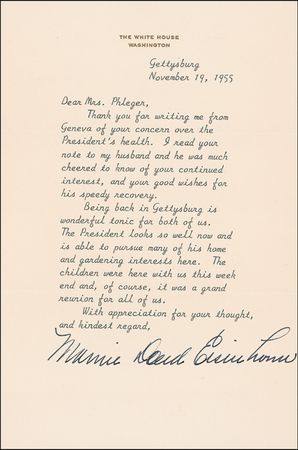 THE WHITE HOUSE
WASHINGTON
Gettysburg
November 19, 1955
Dear Mrs. Phleger,
Thank you for writing me from
Geneva of your concern over the
President's health. I read your
note to my husband and he was much
cheered to know of your continued
interest, and your good wishes for
his speedy recovery.
Being back in Gettysburg is
wonderful tonic for both of us.
The President looks so well now and
is able to pursue many of his home
and gardening interests here. The
children were here with us this week
end and, of course, it was a grand
reunion for all of us.
With appreciation for your thought,
and kindest regard,
Mamie Doud Eisenhower